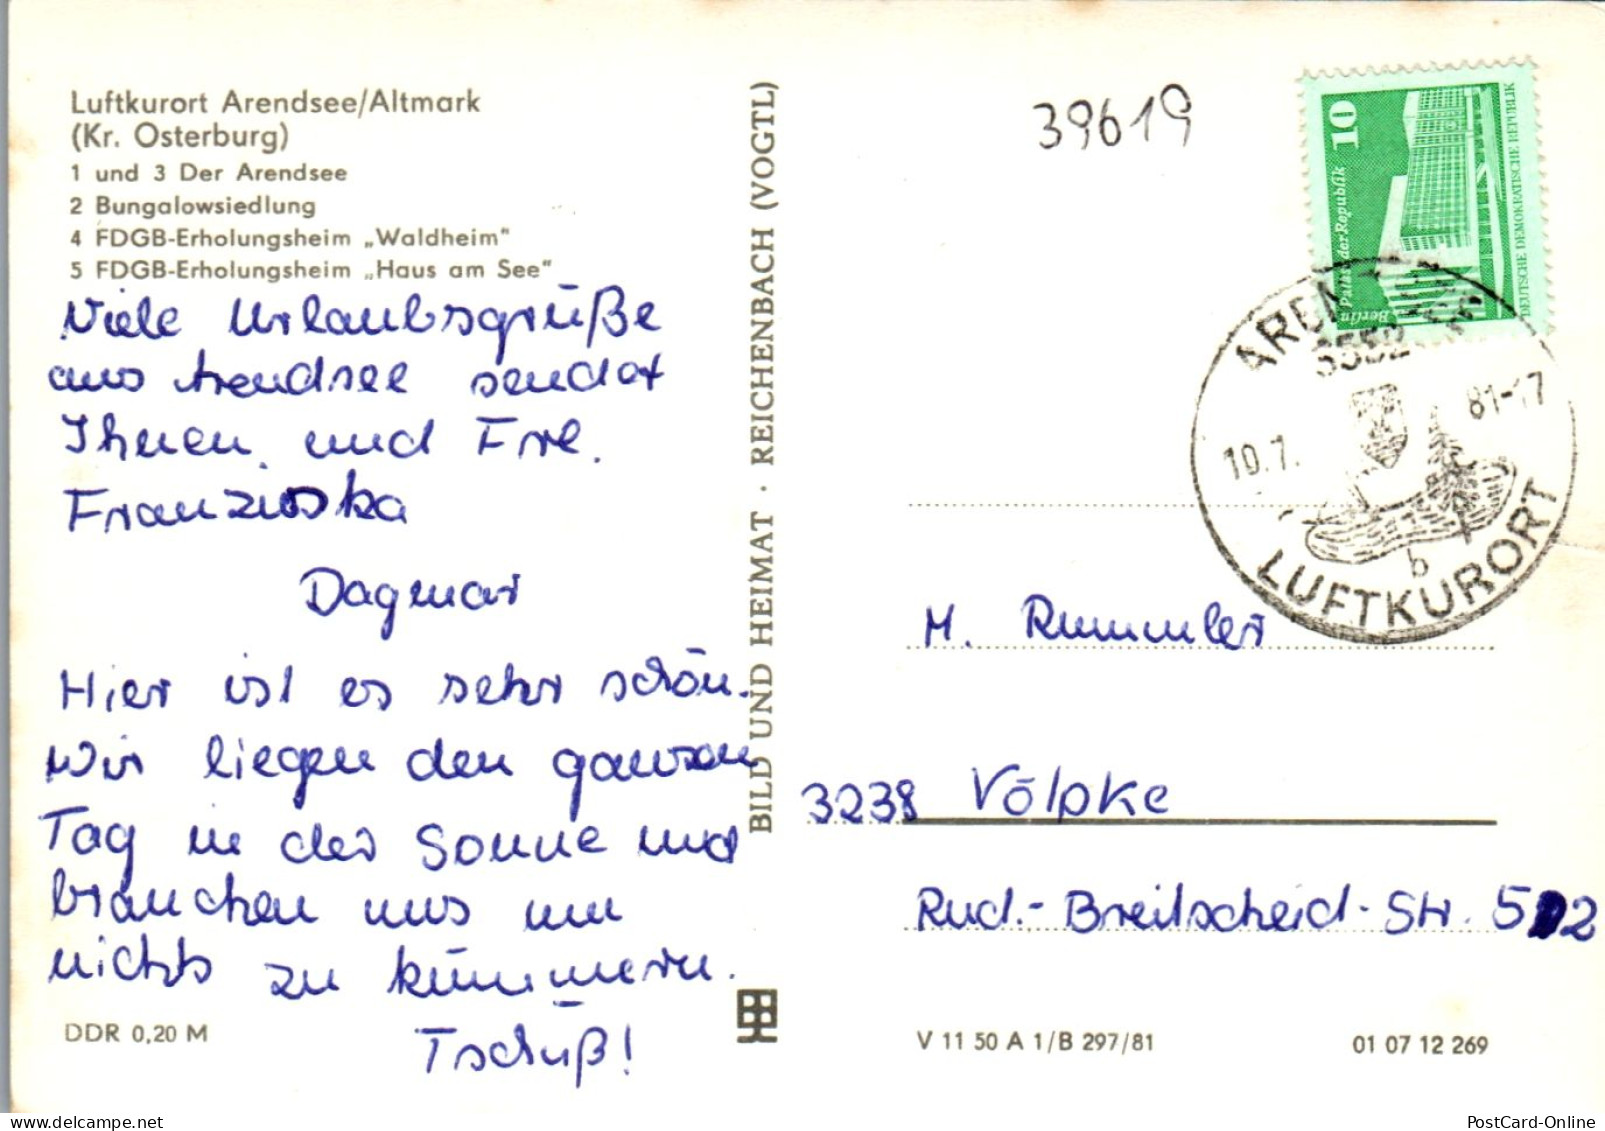 Luftkurort Arendsee/Altmark
(Kr. Osterburg)
1 und 3 Der Arendsee
2 Bungalowsiedlung
4 FDGB-Erholungsheim „Waldheim"
5 FDGB-Erholungsheim „Haus am See"
Viele Urlaubsgrüße
aus Arendsee sendet
Ihnen und Frl.
Franziska
Dagmar
Hier ist es sehr schön.
Wir liegen den ganzen
Tag in der Sonne und
brauchen uns um
nichts zu kümmern.
Tschüß!
DDR 0,20 M
BILD UND HEIMAT · REICHENBACH (VOGTL)
39619
10
Palast der Republik
Berlin
DEUTSCHE DEMOKRATISCHE REPUBLIK
3552
10.7. 81-17
b
LUFTKURORT
M. Rummler
3238 Völpke
Rud.-Breitscheid-Str. 52
V 11 50 A 1/B 297/81
01 07 12 269
PostCard-Online